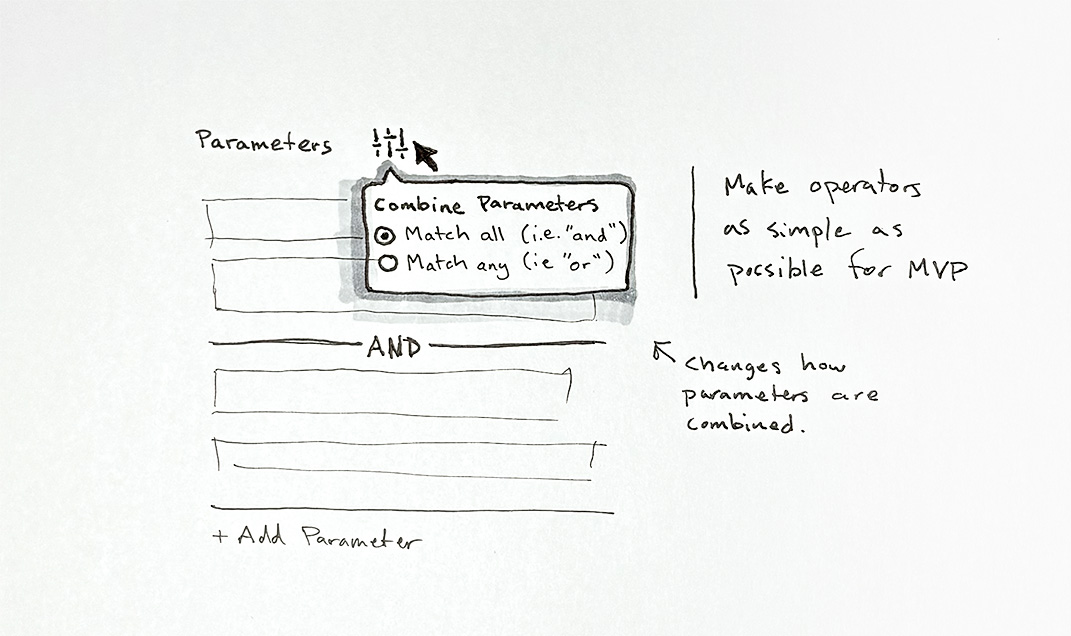 Parameters
Combine Parameters
Match all (i.e. "and")
Match any (ie "or")
AND
+ Add Parameter
Make operators
as simple as
possible for MVP
changes how
parameters are
combined.